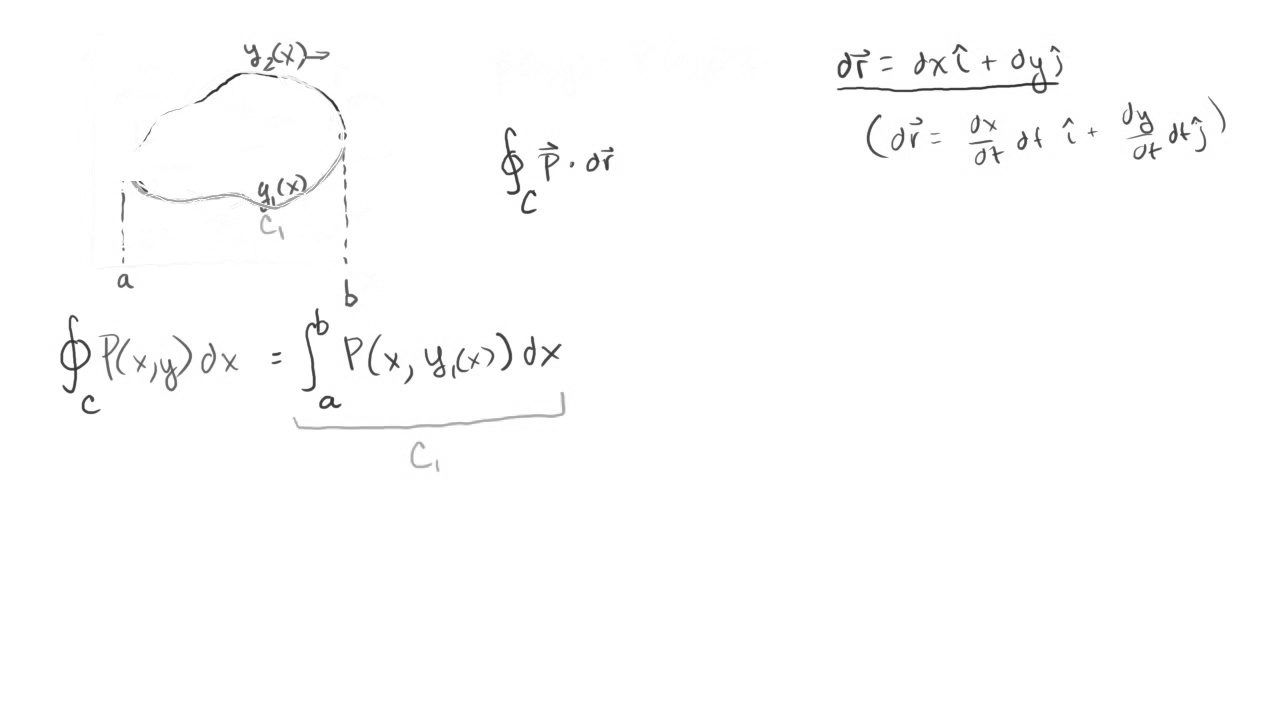 y₂(x)→
y₁(x)
C₁
a
b
∮_C P⃗ · dr⃗
dr⃗ = dx î + dy ĵ
(dr⃗ = dx/dt dt î + dy/dt dt ĵ)
∮_C P(x,y) dx = ∫_a^b P(x, y₁(x)) dx
C₁